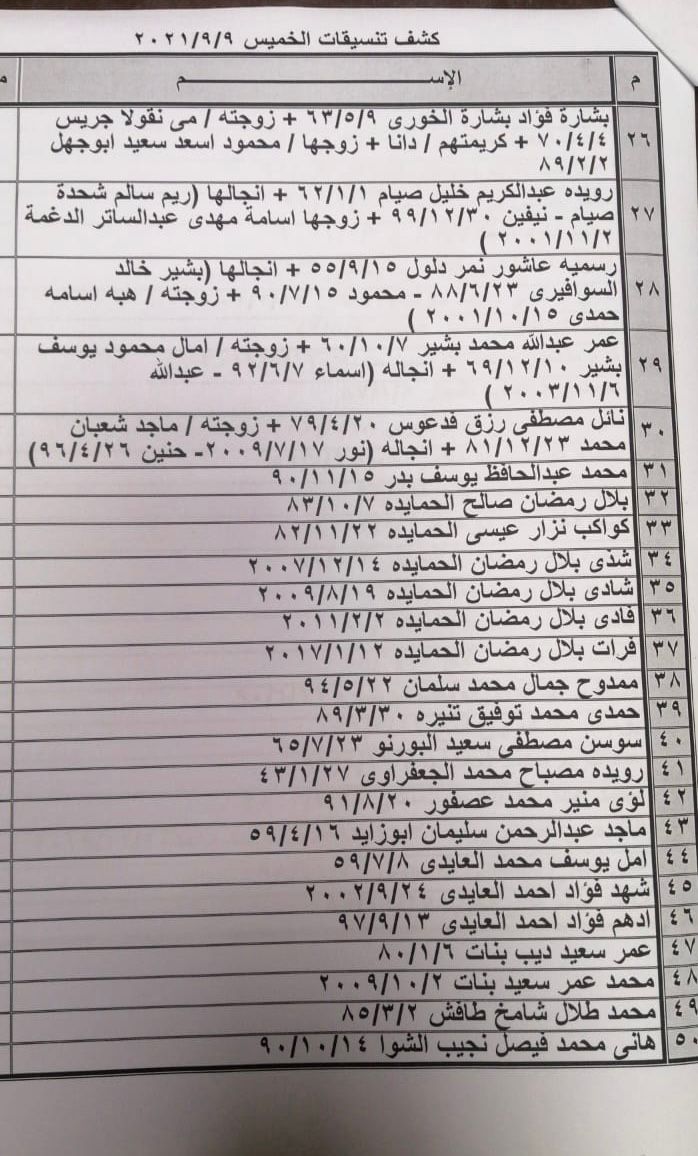 كشف تنسيقات الخميس ٢٠٢١/٩/٩
م الإســـــــــــم م
٢٦ بشارة فؤاد بشارة الخورى ٦٣/٥/٩ + زوجته / مى نقولا جريس
٧٠/٤/٤ + كريمتهم / دانا + زوجها / محمود اسعد سعيد ابوجهل
٨٩/٢/٢
٢٧ رويده عبدالكريم خليل صيام ٦٢/١/١ + انجالها (ريم سالم شحدة
صيام - نيفين ٩٩/١٢/٣٠ + زوجها اسامة مهدى عبدالساتر الدغمة
٢٠٠١/١١/٢ )
٢٨ رسميه عاشور نمر دلول ٥٥/٩/١٥ + انجالها (بشير خالد
السوافيرى ٨٨/٦/٢٣ - محمود ٩٠/٧/١٥ + زوجته / هبه اسامه
حمدى ٢٠٠١/١٠/١٥ )
٢٩ عمر عبدالله محمد بشير ٦٠/١٠/٧ + زوجته / امال محمود يوسف
بشير ٦٩/١٢/١٠ + انجاله (اسماء ٩٢/٦/٧ - عبدالله
٢٠٠٣/١١/٦ )
٣٠ نائل مصطفى رزق فدعوس ٧٩/٤/٢٠ + زوجته / ماجد شعبان
محمد ٨١/١٢/٢٣ + انجاله (نور ٢٠٠٩/٧/١٧- حنين ٩٦/٤/٢٦)
٣١ محمد عبدالحافظ يوسف بدر ٩٠/١١/١٥
٣٢ بلال رمضان صالح الحمايده ٨٣/١٠/٧
٣٣ كواكب نزار عيسى الحمايده ٨٢/١١/٢٢
٣٤ شذى بلال رمضان الحمايده ٢٠٠٧/١٢/١٤
٣٥ شادى بلال رمضان الحمايده ٢٠٠٩/٨/١٩
٣٦ فادى بلال رمضان الحمايده ٢٠١١/٢/٢
٣٧ فرات بلال رمضان الحمايده ٢٠١٧/١/١٢
٣٨ ممدوح جمال محمد سلمان ٩٤/٥/٢٢
٣٩ حمدى محمد توفيق تنيره ٨٩/٣/٣٠
٤٠ سوسن مصطفى سعيد البورنو ٦٥/٧/٢٣
٤١ رويده مصباح محمد الجعفراوى ٤٣/١/٢٧
٤٢ لؤى منير محمد عصفور ٩١/٨/٢٠
٤٣ ماجد عبدالرحمن سليمان ابوزايد ٥٩/٤/١٦
٤٤ امل يوسف محمد العايدى ٥٩/٧/٨
٤٥ شهد فؤاد احمد العايدى ٢٠٠٢/٩/٢٤
٤٦ ادهم فؤاد احمد العايدى ٩٧/٩/١٣
٤٧ عمر سعيد ديب بنات ٨٠/١/٦
٤٨ محمد عمر سعيد بنات ٢٠٠٩/١٠/٢
٤٩ محمد طلال شامخ طافش ٨٥/٣/٢
٥٠ هانى محمد فيصل نجيب الشوا ٩٠/١٠/١٤